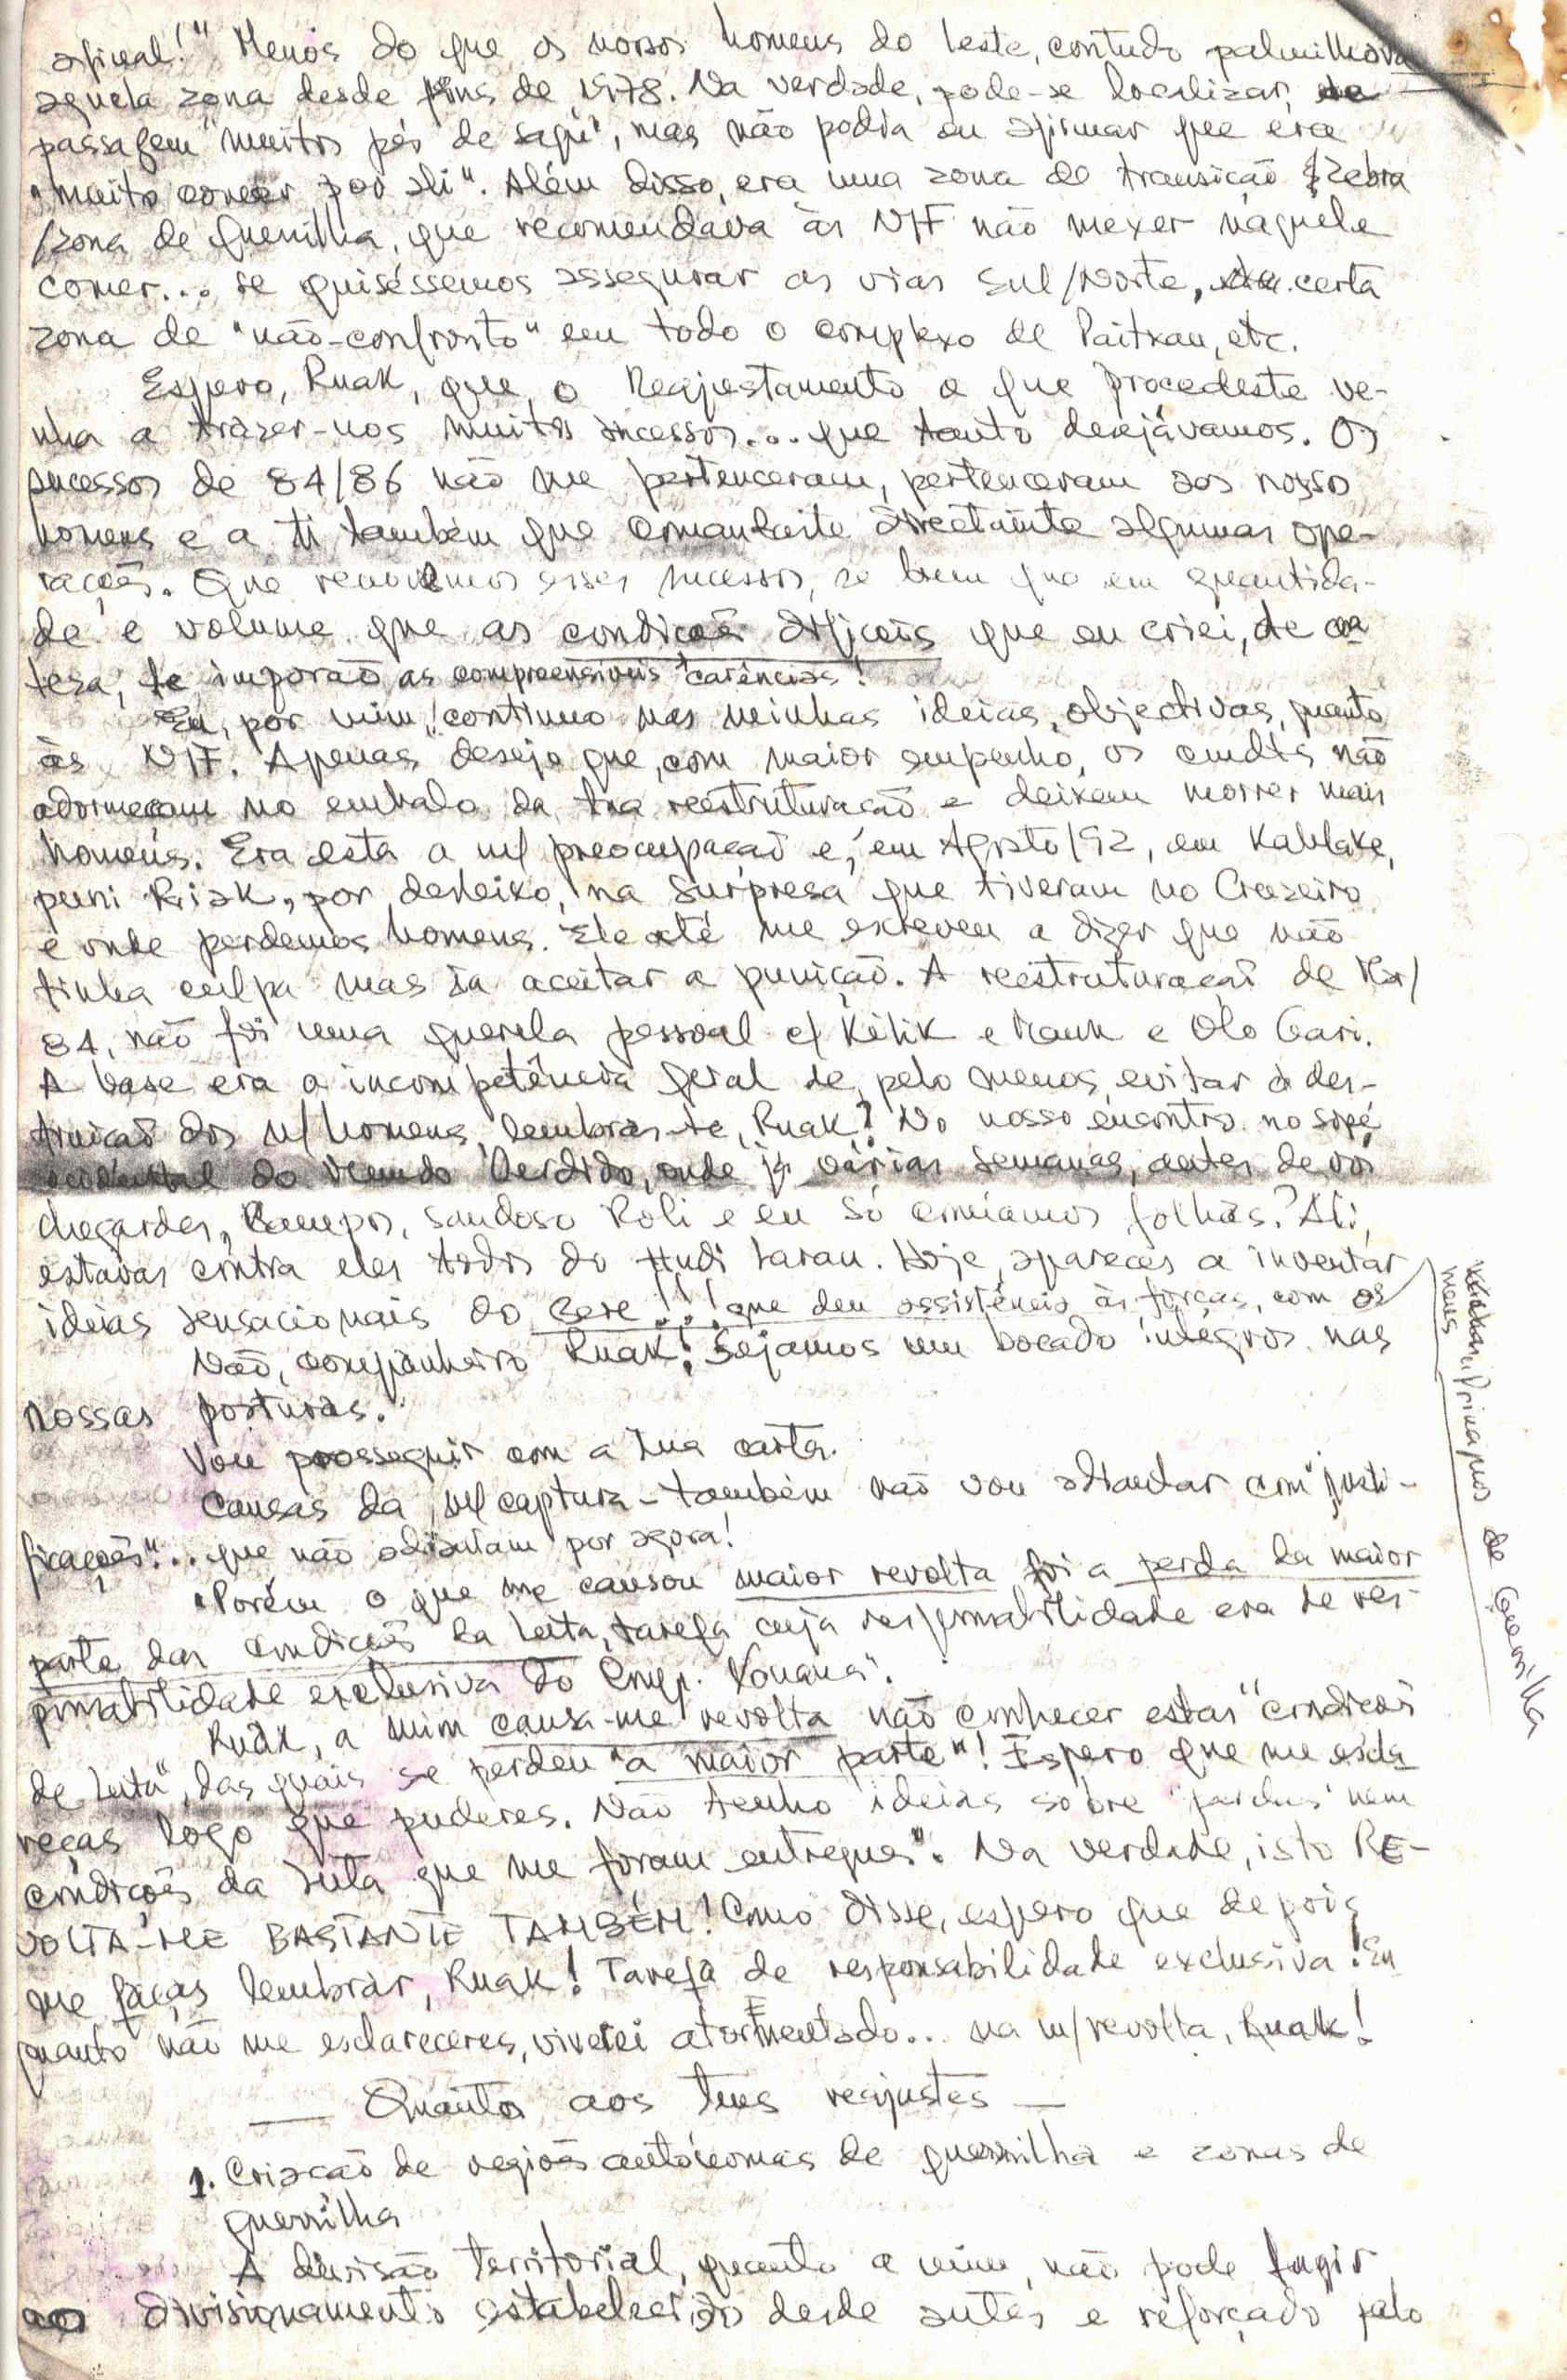 afinal!" Menos do que os nossos homens do leste, contudo palmilhava
aquela zona desde fins de 1978. Na verdade, pode-se localizar, de
passagem "muitos pés de sagú", mas não podia eu afirmar que era
"muito comer por ali". Além disso, era uma zona de transição
/zona de guerrilha, que recomendava às NF não mexer naquele
comer... se quiséssemos assegurar as vias Sul/Norte, certa
zona de "não-confronto" em todo o complexo de Paitxau, etc.
Espero, Ruak, que o Reajustamento a que procedeste ve-
nha a trazer-nos muitos sucessos... que tanto desejávamos. Os
sucessos de 84/86 não me pertenceram, pertenceram aos nosso
homens e a ti também que comandaste directamente algumas ope-
rações. Que renovemos esses sucessos, se bem que em quantida-
de e volume que as condições difíceis que eu criei, de ca
tesa, te imporão as compreensíveis "carências"!
Eu, por mim, continuo nas minhas ideias, objectivas, quanto
às NF. Apenas desejo que, com maior empenho, os cmdts não
adormeçam no embalo da tua reestruturação e deixem morrer mais
homens. Era esta a m/ preocupação e, em Agosto/92, em Kablake,
puni Riak, por desleixo, na surpresa que tiveram no Cruzeiro
e onde perdemos homens. Ele até me escreveu a dizer que não
tinha culpa mas ia aceitar a punição. A reestruturação de Mar/
84, não foi uma querela pessoal c/ Kilik e Mauk e Olo Gari.
A base era a incompetência geral de, pelo menos, evitar a des-
truição dos n/homens, lembras-te, Ruak? No nosso encontro no sopé
ocidental do Mundo Perdido, onde já várias semanas, antes de vós
chegardes, Campos, saudoso Roli e eu só comíamos folhas? Ali,
estavas contra eles todos do Hudi Laran. Hoje, apareces a inventar
ideias sensacionais do Bere!!! que deu assistência às forças, com os
velhos princípios de Guerrilha
meus
Não, companheiro Ruak! Sejamos um bocado íntegros nas
nossas posturas.
Vou prosseguir com a tua carta.
Causas da m/ captura - também não vou adiantar com "justi-
ficações"... que não adiantam por agora!
"Porém o que me causou maior revolta foi a perda da maior
parte das condições da luta, tarefa cuja responsabilidade era de res-
ponsabilidade exclusiva do Comp. Xanana".
Ruak, a mim causa-me revolta não conhecer estas "condições
de luta", das quais se perdeu "a maior parte"! Espero que me escla
reças logo que puderes. Não tenho ideias sobre "perdas" nem
condições da luta que me foram entregues". Na verdade, isto RE-
VOLTA-ME BASTANTE TAMBÉM! Como disse, espero que depois
me faças lembrar, Ruak! Tarefa de responsabilidade exclusiva! En
quanto não me esclareceres, viverei atormentado... na m/revolta, Ruak!
— Quanto aos teus reajustes —
1. Criação de regiões autónomas de guerrilha e zonas de
guerrilha
A divisão territorial, quanto a mim, não pode fugir
ao divisionamento estabelecido desde antes e reforçado pelo